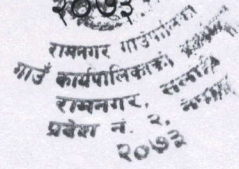 २०७३
रामनगर गाउँपालिका
गाउँ कार्यपालिकाको
रामनगर, सर्लाही
प्रदेश नं. २,
२०७३